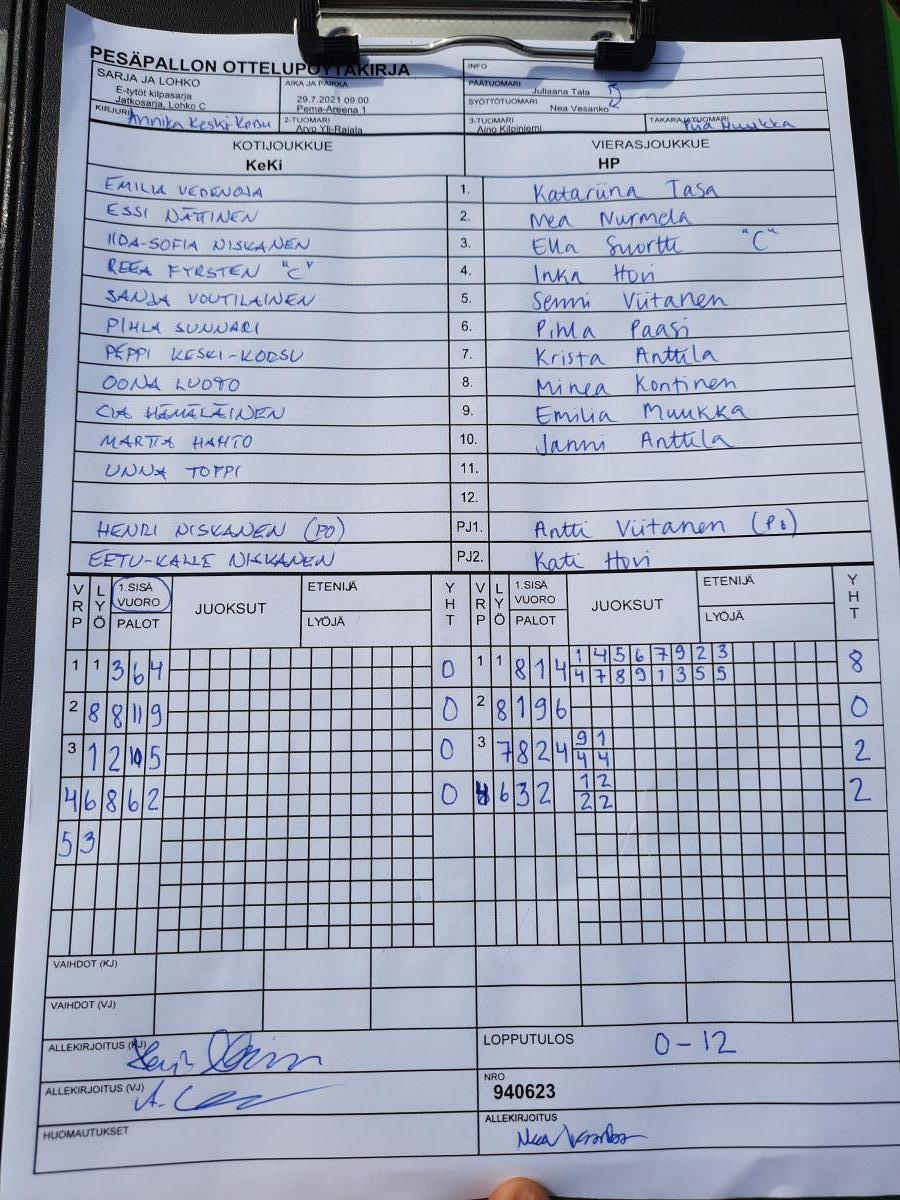 PESÄPALLON OTTELUPÖYTÄKIRJA
INFO
SARJA JA LOHKO
E-tytöt kilpasarja
Jatkosarja, Lohko C
AIKA JA PAIKKA
29.7.2021 09:00
Pema-Areena 1
PÄÄTUOMARI
Juliaana Tala
SYÖTTÖTUOMARI
Nea Vesanko
KIRJURI Annika Keski-Korsu
2-TUOMARI
Arvo Yli-Rajala
3-TUOMARI
Aino Kilpiniemi
TAKARAJATUOMARI
Piia Muukka
KOTIJOUKKUE
KeKi
VIERASJOUKKUE
HP
EMILIA VEDENOJA 1. Katariina Tasa
ESSI NÄTTINEN 2. Nea Nurmela
IIDA-SOFIA NISKANEN 3. Ella Suortti "C"
REEA FYRSTEN "C" 4. Inka Hovi
SANJA VOUTILAINEN 5. Senni Viitanen
PIHLA SUNNARI 6. Pihla Paasi
PEPPI KESKI-KORSU 7. Krista Anttila
OONA LUOTO 8. Minea Kontinen
CIA HÄMÄLÄINEN 9. Emilia Muukka
MARTTA HAHTO 10. Janni Anttila
UNNA TOPPI 11.
12.
HENRI NISKANEN (PO) PJ1. Antti Viitanen (PO)
EETU-KALLE NISKANEN PJ2. Kati Hovi
VRP LYÖ 1.SISÄ VUORO PALOT JUOKSUT ETENIJÄ LYÖJÄ YHT VRP LYÖ 1.SISÄ VUORO PALOT JUOKSUT ETENIJÄ LYÖJÄ YHT
1 4 5 6 7 9 2 3
1 1 3 6 4 0 1 1 8 1 4 8
4 7 8 9 1 3 5 5
2 8 8 11 9 0 2 8 1 9 6 0
9 1
3 1 2 10 5 0 3 7 8 2 4 2
4 4
1 2
4 6 8 6 2 0 4 6 3 2 2
2 2
5 3
VAIHDOT (KJ)
VAIHDOT (VJ)
ALLEKIRJOITUS (KJ)
LOPPUTULOS 0-12
ALLEKIRJOITUS (VJ)
NRO
940623
HUOMAUTUKSET
ALLEKIRJOITUS
Nea Vesanko